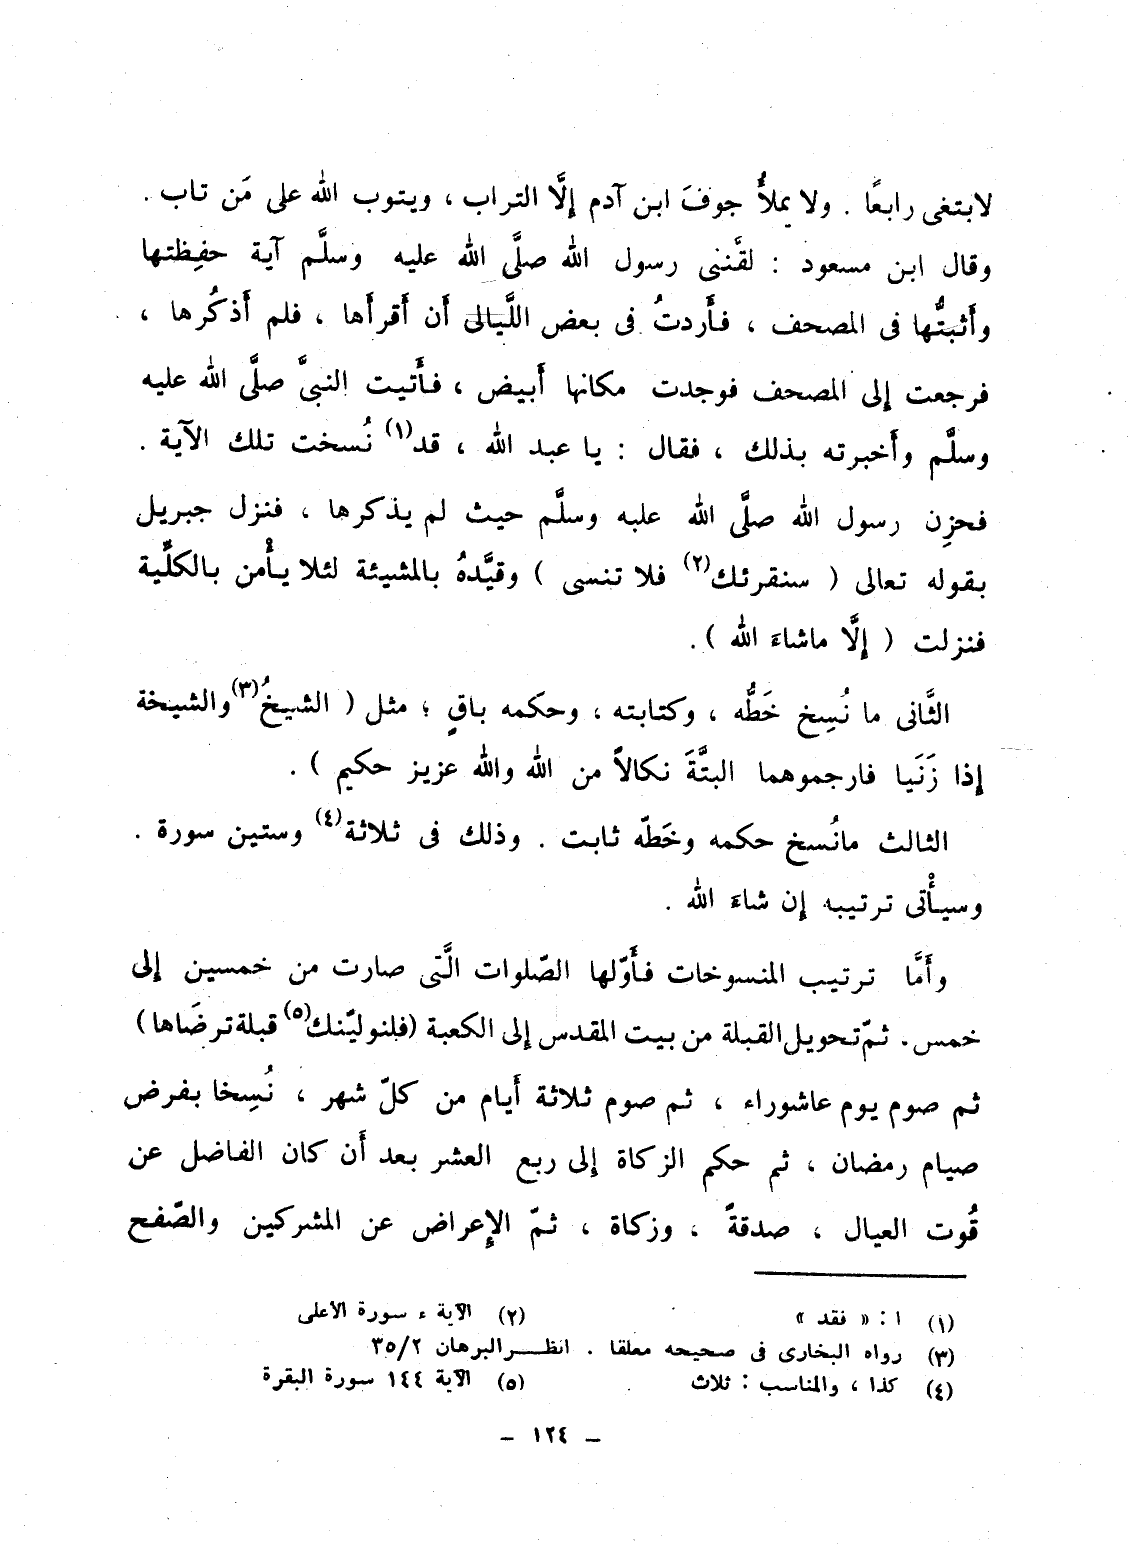 لابتغى رابعًا . ولا يملأُ جوفَ ابن آدم إلَّا التراب ، ويتوب الله على مَن تاب .
وقال ابن مسعود : لقَّننى رسول الله صلَّى الله عليه وسلَّم آية حفِظتها
وأَثبتُّها فى المصحف ، فأَردتُ فى بعض اللَّيالى أَن أَقرأَها ، فلم أَذكُرها ،
فرجعت إلى المصحف فوجدت مكانها أَبيض ، فأَتيت النبىَّ صلَّى الله عليه
وسلَّم وأَخبرته بذلك ، فقال : يا عبد الله ، قد(١) نُسخت تلك الآية .
فحزِن رسول الله صلَّى الله عليه وسلَّم حيث لم يذكرها ، فنزل جبريل
بقوله تعالى ( سنقرئك(٢) فلا تنسى ) وقيَّدهُ بالمشيئة لئلا يأْمن بالكلِّية
فنزلت ( إلَّا ماشاءَ الله ) .
الثَّانى ما نُسِخ خَطُّه ، وكتابته ، وحكمه باقٍ ؛ مثل ( الشيخُ(٣) والشيخة
إذا زَنَيا فارجموهما البتَّةَ نكالاً من الله والله عزيز حكيم ) .
الثالث مانُسخ حكمه وخَطّه ثابت . وذلك فى ثلاثة(٤) وستين سورة .
وسيأْتى ترتيبه إن شاءَ الله .
وأَمَّا ترتيب المنسوخات فأَوّلها الصّلوات الَّتى صارت من خمسين إلى
خمس . ثمّ تحويل القبلة من بيت المقدس إلى الكعبة (فلنوليّنك(٥) قبلة ترضَاها)
ثم صوم يوم عاشوراء ، ثم صوم ثلاثة أَيام من كلّ شهر ، نُسِخا بفرض
صيام رمضان ، ثم حكم الزكاة إلى ربع العشر بعد أَن كان الفاضل عن
قُوت العيال ، صدقةً ، وزكاة ، ثمّ الإعراض عن المشركين والصّفح
(١) ا : « فقد » (٢) الآية ٤ سورة الأعلى
(٣) رواه البخارى فى صحيحه معلقا . انظـــر البرهان ٣٥/٢
(٤) كذا ، والمناسب : ثلاث (٥) الآية ١٤٤ سورة البقرة
– ١٢٤ –